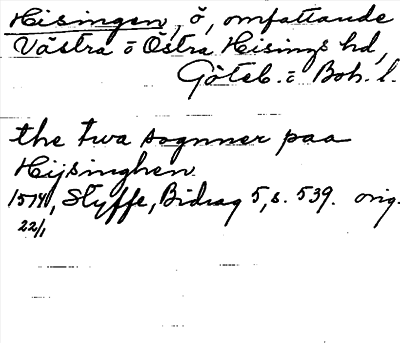 Hisingen, ö, omfattande
Västra o Östra Hisings hd,
Göteb. o Boh. l.
the twa sognner paa
Hijsinghen.
1514, Styffe, Bidrag 5, s. 539. orig.
22/1